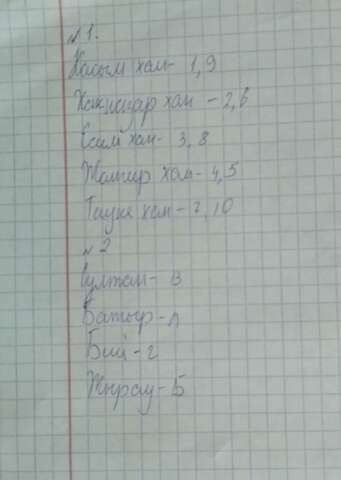 № 1.
Касым хан - 1, 9
Хакназар хан - 2, 6
Есим хан - 3, 8
Жангир хан - 4, 5
Тауке хан - 7, 10
№ 2
Султан - В
Батыр - А
Бий - г
Жырау - Б